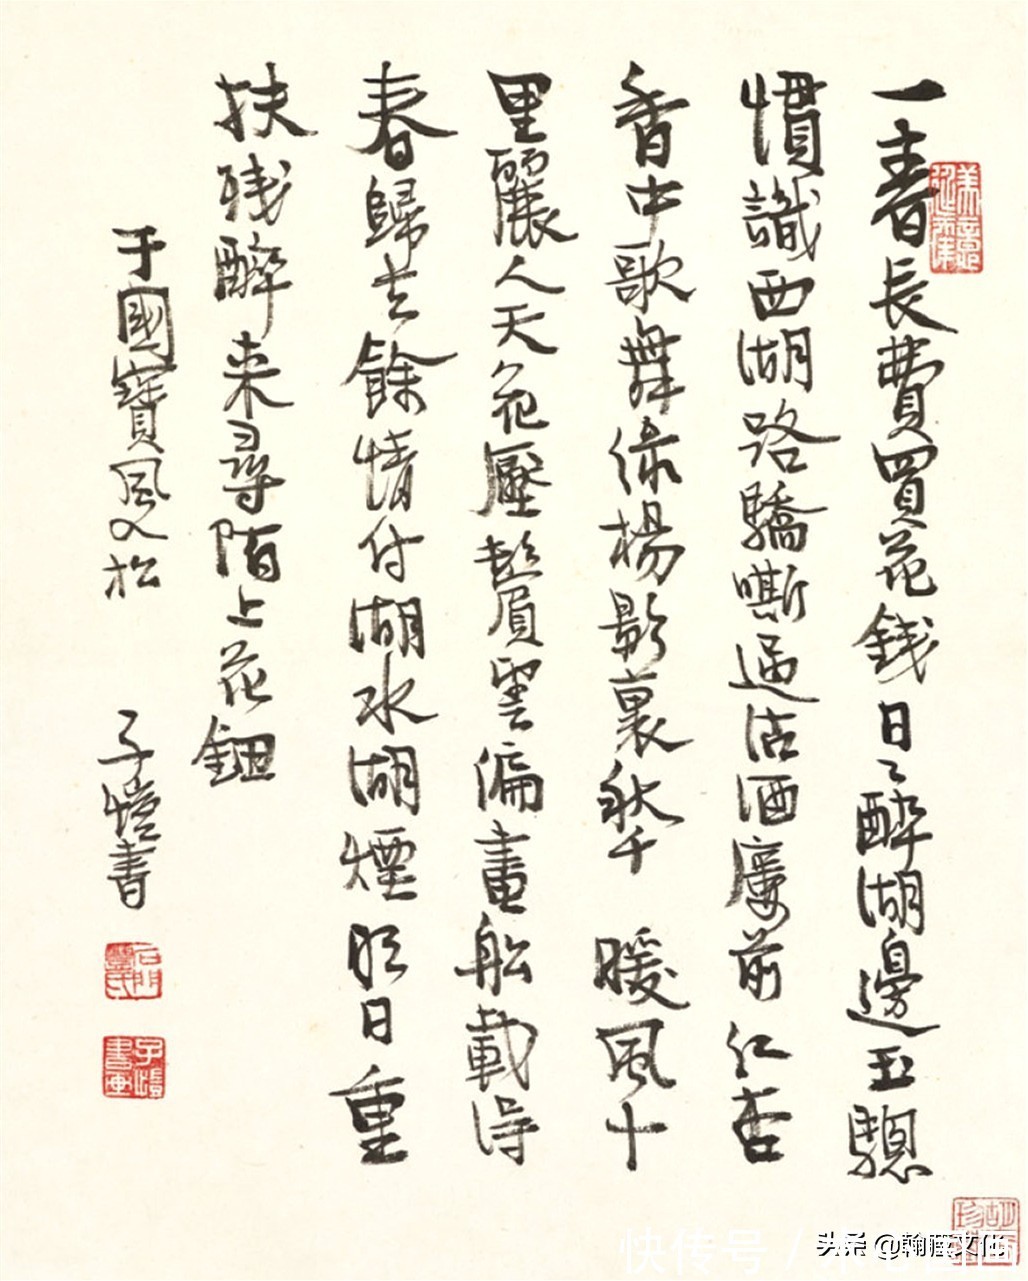 一春長費買花錢日々醉湖邊玉驄
慣識西湖路驕嘶過沽酒樓前紅杏
香中歌舞綠楊影裏秋千暖風十
里麗人天花壓鬢雲偏畫船載得
春歸去餘情付湖水湖煙明日重
扶殘醉來尋陌上花鈿
于國寶風入松
子愷書
石門豐氏
子愷書画
头条 @翰藏文化
快传号 /